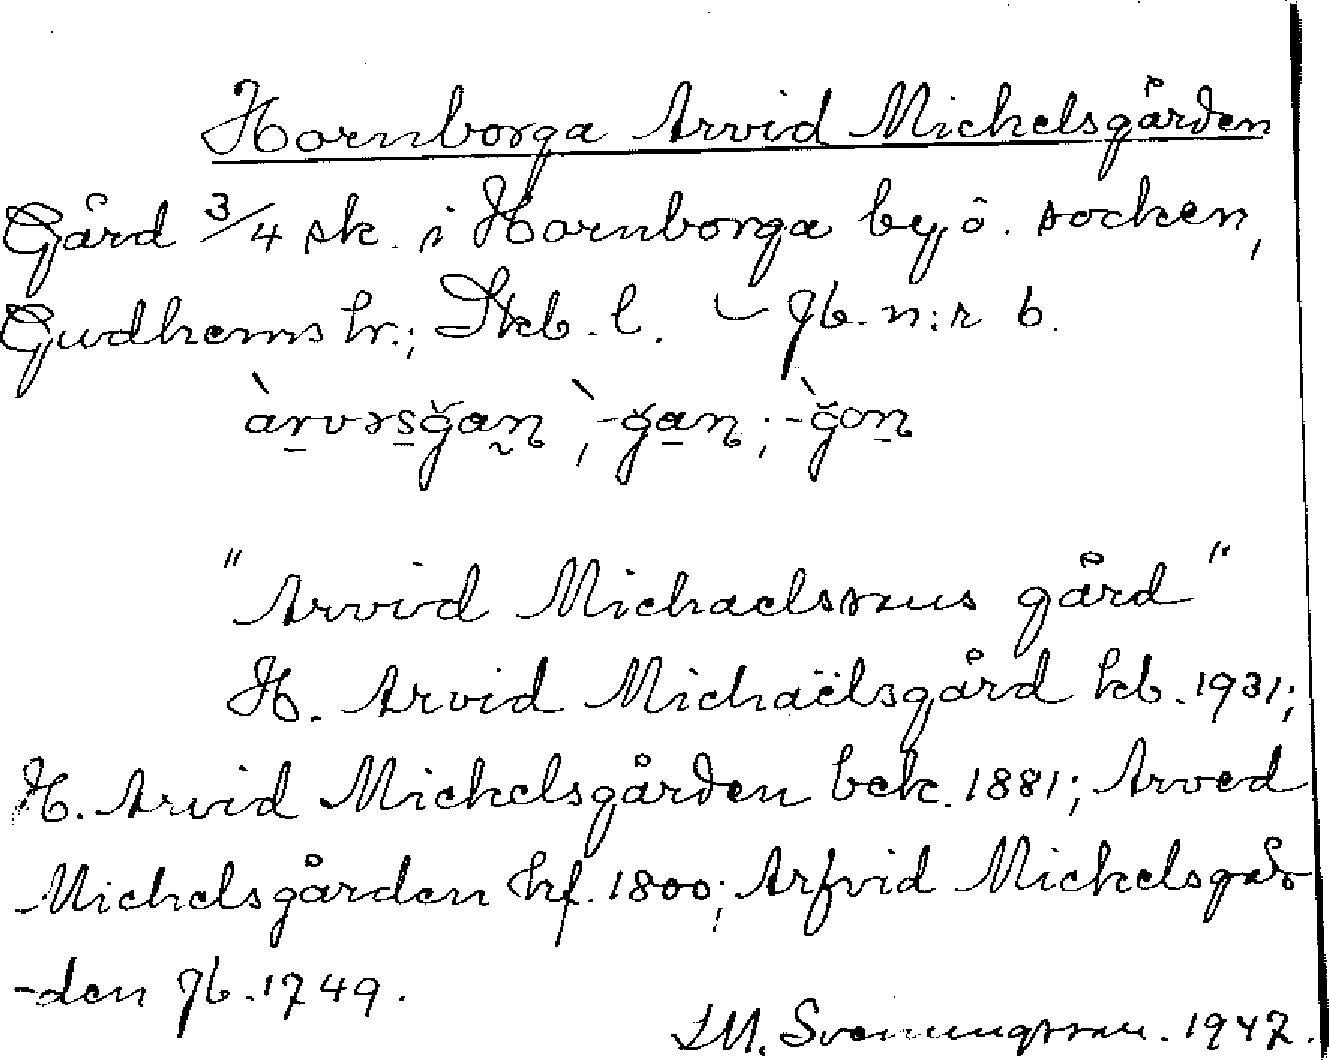 Hornborga Arvid Mickelsgården
Gård 3/4 sk. i Hornborga by o. socken,
Gudhems hr.; Skb. l. – Jb. n:r 6.
àrvəsğan; -ğan; -ğon
"Arvid Michaelssons gård"
H. Arvid Michaëlsgård kb. 1931;
H. Arvid Mickelsgården bek. 1881; Arved
Michelsgården hf. 1800; Arfvid Mickelsgår
-den Jb. 1749.
LM. Svenungsson. 1947.